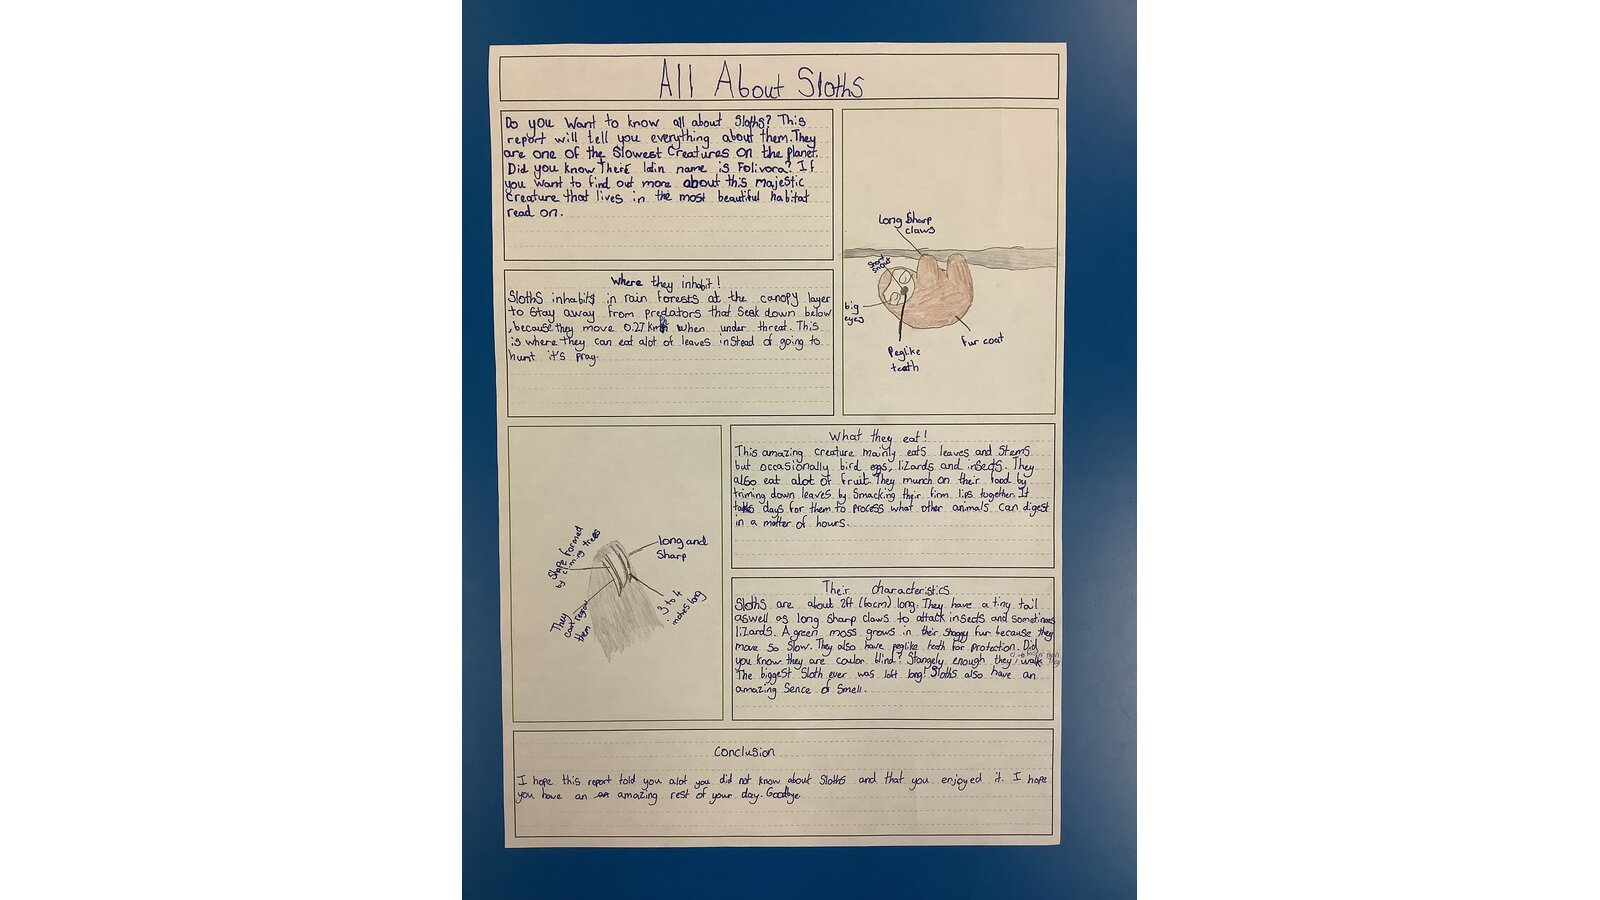 All About Sloths
Do you want to know all about Sloths? This
report will tell you everything about them. They
are one of the Slowest Creatures on the planet.
Did you know There latin name is Folivora? If
you want to find out more about this majestic
Creature that lives in the most beautiful habitat
read on.
long Sharp
claws
Short
snout
big
eyes
Peglike
teeth
fur coat
Where they inhabit!
Sloths inhabits in rain forests at the canopy layer
to stay away from predators that seak down below
,because they move 0.27 Kmph when under threat. This
is where they can eat alot of leaves instead of going to
hunt it's pray.
Shape formed
by climing trees
long and
Sharp
They
can regrow
them
3 to 4
inches long
What they eat!
This amazing creature mainly eats leaves and stems
but occasionally bird eggs, lizards and insects. They
also eat alot of fruit. They munch on their food by
triming down leaves by smacking their firm lips together. It
takes days for them to process what other animals can digest
in a matter of hours.
Their characteristics
Sloths are about 2ft (60cm) long. They have a tiny tail
aswell as long sharp claws to attack insects and sometimes
lizards. A green moss grows in their shaggy fur because they
move so slow. They also have peglike teeth for protection. Did
you know they are coulor blind? Stangely enough they walk
The biggest Sloth ever was 10ft long! Sloths also have an
amazing Sence of Smell.
Conclusion
I hope this report told you alot you did not know about Sloths and that you enjoyed it. I hope
you have an amazing rest of your day. Goodbye